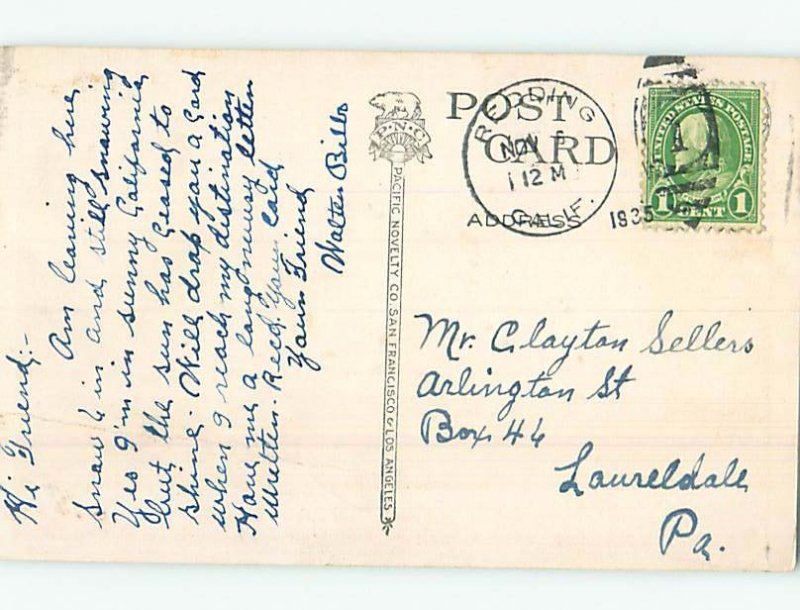 Hi Friend:-
Am leaving here
snow 6 in and still snowing
Yes I'm in sunny California
but the sun has ceased to
shine. Will drop you a card
when I reach my distination
Have me a long newsy letter
written. Recd. your card
Your Friend
Walter
P.N.C.
PACIFIC NOVELTY CO. SAN FRANCISCO & LOS ANGELES
POST CARD
ADDRESS
REDDING
NOV 5
12 M
CALIF.
1935
UNITED STATES POSTAGE
1 CENT 1
Mr. Clayton Sellers
Arlington St
Box 46
Laureldale
Pa.